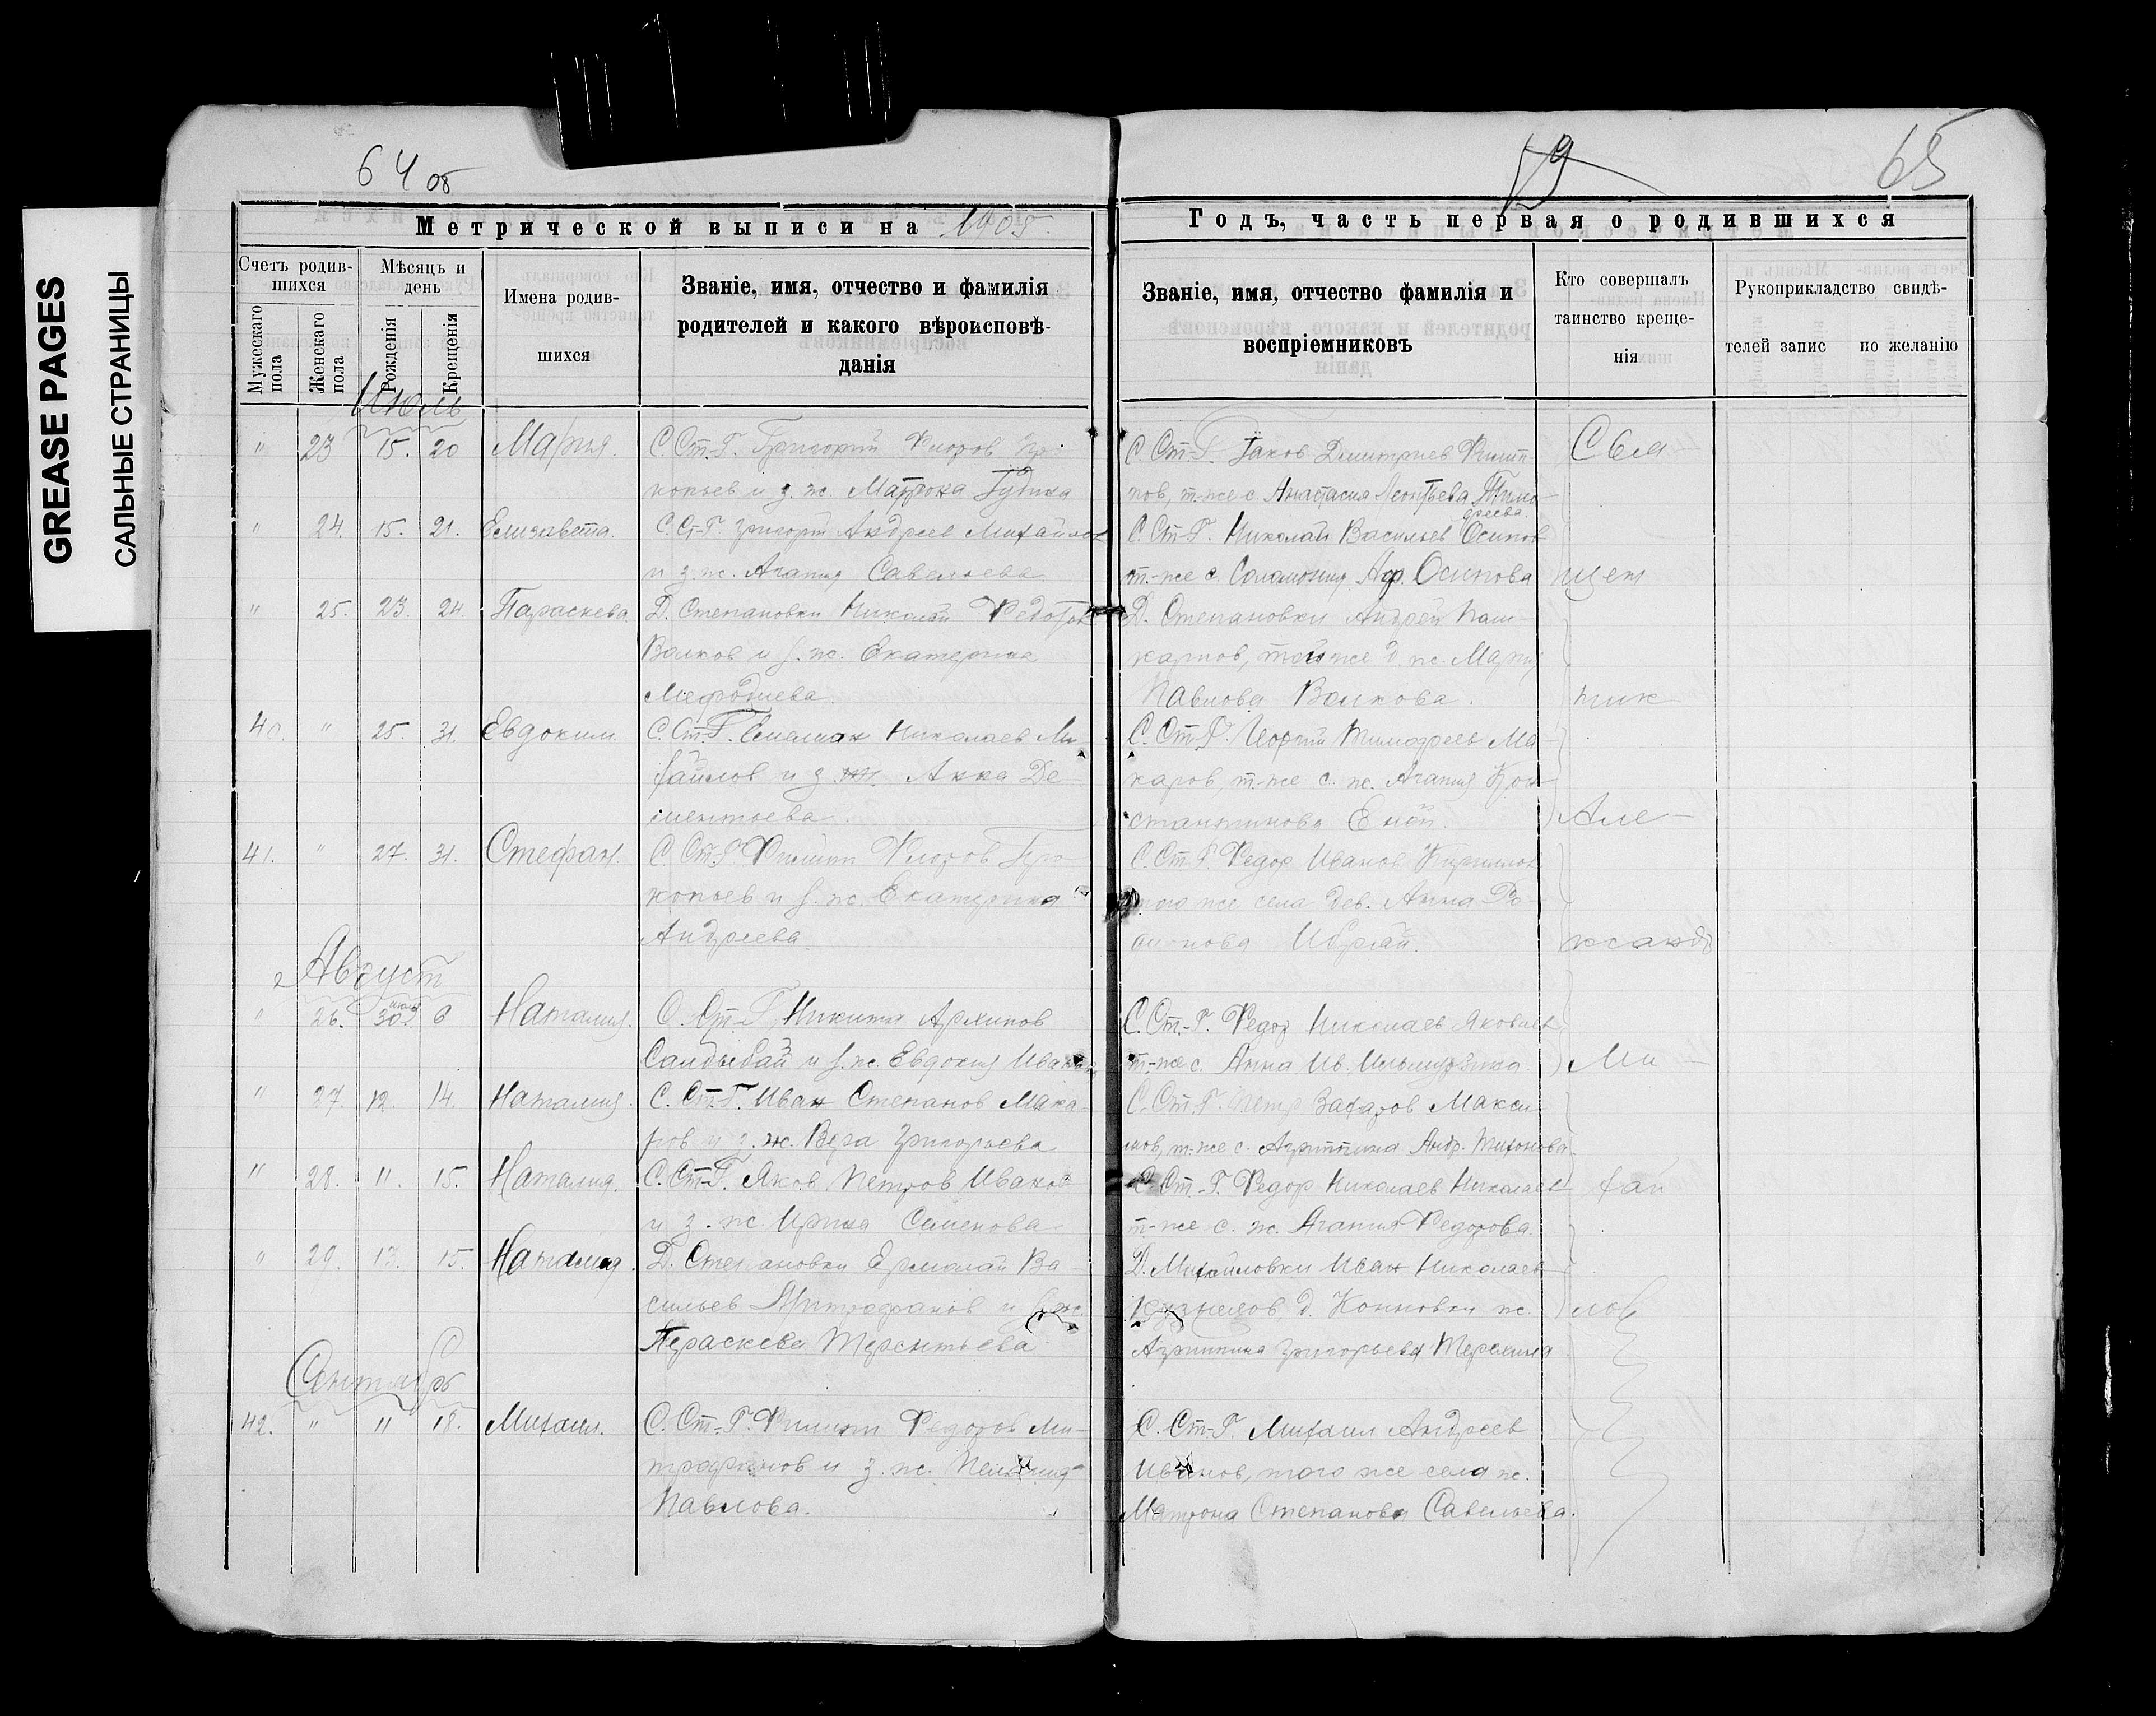 GREASE PAGES
САЛЬНЫЕ СТРАНИЦЫ
64 об
Метрической выписи на 1905
Счетъ родив-
шихся
Мѣсяць и
день
Мужескаго
пола
Женскаго
пола
Рожденія
Крещенія
Имена родив-
шихся
Званіе, имя, отчество и фамилія
родителей и какого вѣроисповѣ-
данія
Июль
" 23 15. 20 Мария. С. Ст.-Г. Григорий Флоров Про
копьев и з. ж. Матрона Гудина
" 24. 15. 21. Елизавета. С. Ст-Г. Григорий Андреев Михайлов
и з. ж. Агапия Савельева
" 25. 23. 24. Параскева Д. Степановки Николай Федотов
Волков и з. ж. Екатерина
Мефодиева.
40. " 25. 31. Евдоким. С. Ст.-Г. Емелиан Николаев Ми
хайлов и з. ж. Анна Де-
ментьева.
41. " 27. 31. Стефан. С. Ст.-Г Филипп Флоров Про
копьев и з. ж. Екатерина
Андреева.
Август
" 26. 30. июля 6 Наталия. С. Ст.-Г. Никита Архипов
Самдыбай и з. ж. Евдокия Иванова
" 27. 12. 14. Наталия. С. Ст.-Г. Иван Степанов Мака-
ров и з. ж. Вера Григорьева
" 28. 11. 15. Наталия. С. Ст-Г. Яков Петров Иванов
и з. ж. Ирина Семенова
" 29. 13. 15. Наталия. Д. Степановки Ермолай Ва-
сильев Митрофанов и з. ж.
Параскева Терентьева
Сентябрь
42. " 11 18. Михаил. С. Ст.-Г. Филипп Федоров Ми-
трофанов и з. ж. Пелагия
Павлова.
59
65
Годъ, часть первая о родившихся
Званіе, имя, отчество фамилія и
воспріемниковъ
Кто совершалъ
таинство креще-
нія
Рукоприкладство свидѣ-
телей запис по желанію
С. Ст-Г. Iаков Димитриев Филип-
пов, т-же с. Анастасия Леонтьева Тимо-
феева.
С. Ст-Г. Николай Васильев Осипов
т.-же с. Соломония Аф. Осипова
Д. Степановки Андрей Паш-
карпов, той же д. ж. Мария
Павлова Волкова.
С. Ст.-Г. Георгий Тимофеев Ма-
каров, т.-же с. ж. Агапия Кон-
стантинова Еной.
С. Ст-Г. Федор Иванов Кириллов
того же села дев. Анна Ро
манова
С. Ст.-Г. Федор Николаев Яковлев
т-же с. Анна Ив.
С. Ст-Г. Петр Захаров Макси-
мов, т.-же с. Агриппина Андр. Тихонова
С. Ст.-Г. Федор Николаев Николаев
т-же с. ж. Агапия Федорова.
Д. Михайловки Иван Николаев
д. Конновки ж.
Агриппина Григорьева Терехина
С. Ст-Г. Михаил Андреев
Иванов, того же села ж.
Матрона Степанова Савельева.
Свя-
щен
ник
Але-
ксандр
Ми-
хай
лов